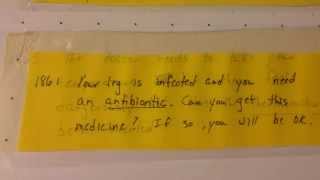 1861 Your leg is infected and you need
an antibiontic. Can you get this
medicine? If so, you will be OK.